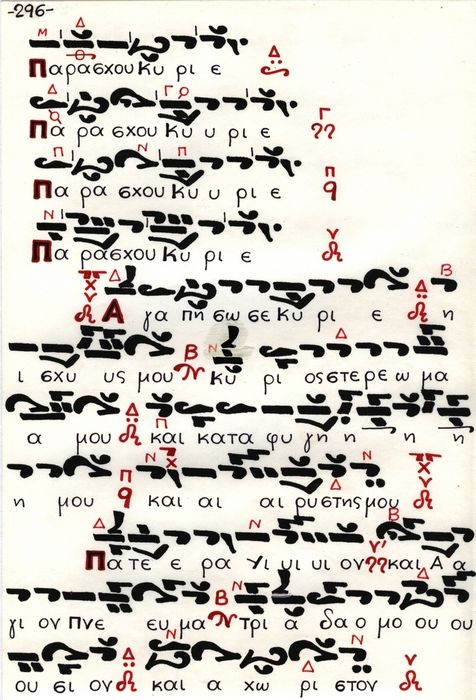 -296-
Παρασχου Κυ ρι ε
Πα ρα σχου Κυ υ ρι ε
Πα ρα σχου Κυ υ ρι ε
Παρασχου Κυ ρι ε
Α γα πη σω σε Κυ ρι ε η
ι σχυ υς μου Κυ ρι ος στε ρε ω μα
α μου και κατα φυ γη η η η
η μου και αι αι ρυστης μου
Πα τε ε ρα Υι υι υι ον και Α α
γι ον Πνε ευ μα τρι α δα ο μο ου ου
ου σι ον και α χω ρι στον